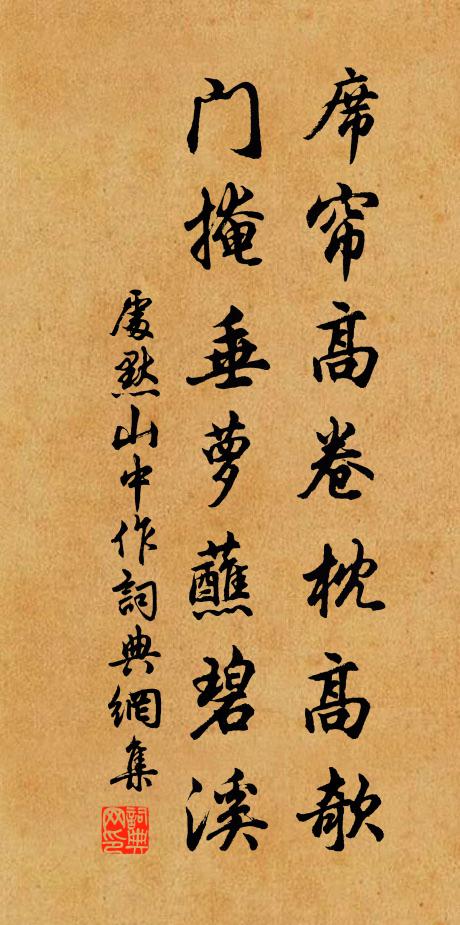 席帘高卷枕高欹
门掩垂萝蘸碧溪
處默山中作詞典網集
詞典网印